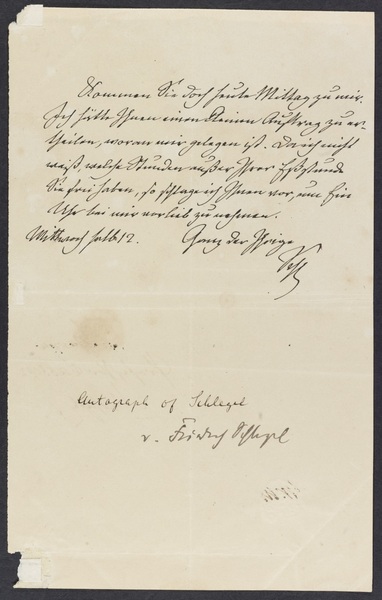 Kommen Sie doch heute Mittag zu mir.
Ich hätte Ihnen einen kleinen Auftrag zu er-
theilen, woran mir gelegen ist. Da ich nicht
weiß, welche Stunden außer Ihrer Eßstunde
Sie frei haben, so schlage ich Ihnen vor, um Ein
Uhr bei mir vorlieb zu nehmen.
Mittwoch halb 12. Ganz der Ihrige
Autograph of Schlegel
v. Friedrich Schlegel